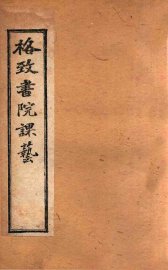 格致書院課藝